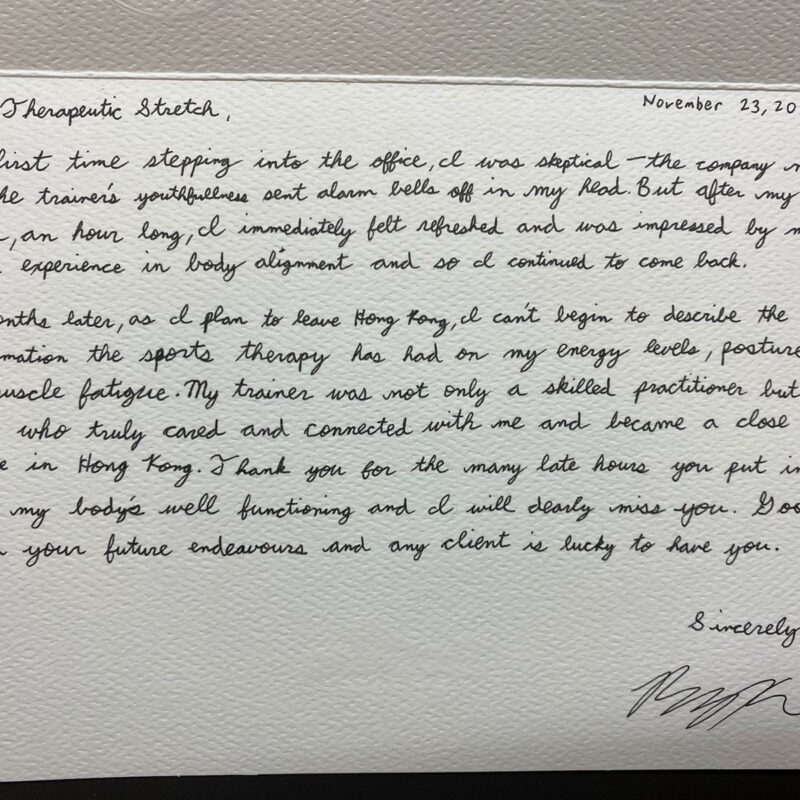 Therapeutic Stretch,
November 23, 20
first time stepping into the office, I was skeptical – the company
he trainer's youthfullness sent alarm bells off in my head. But after my
, an hour long, I immediately felt refreshed and was impressed by
experience in body alignment and so I continued to come back.
onths later, as I plan to leave Hong Kong, I can't begin to describe the
mation the sports therapy has had on my energy levels, posture
uscle fatigue. My trainer was not only a skilled practitioner but
who truly cared and connected with me and became a close
e in Hong Kong. Thank you for the many late hours you put in
my body's well functioning and I will dearly miss you. Goo
your future endeavours and any client is lucky to have you.
Sincerely